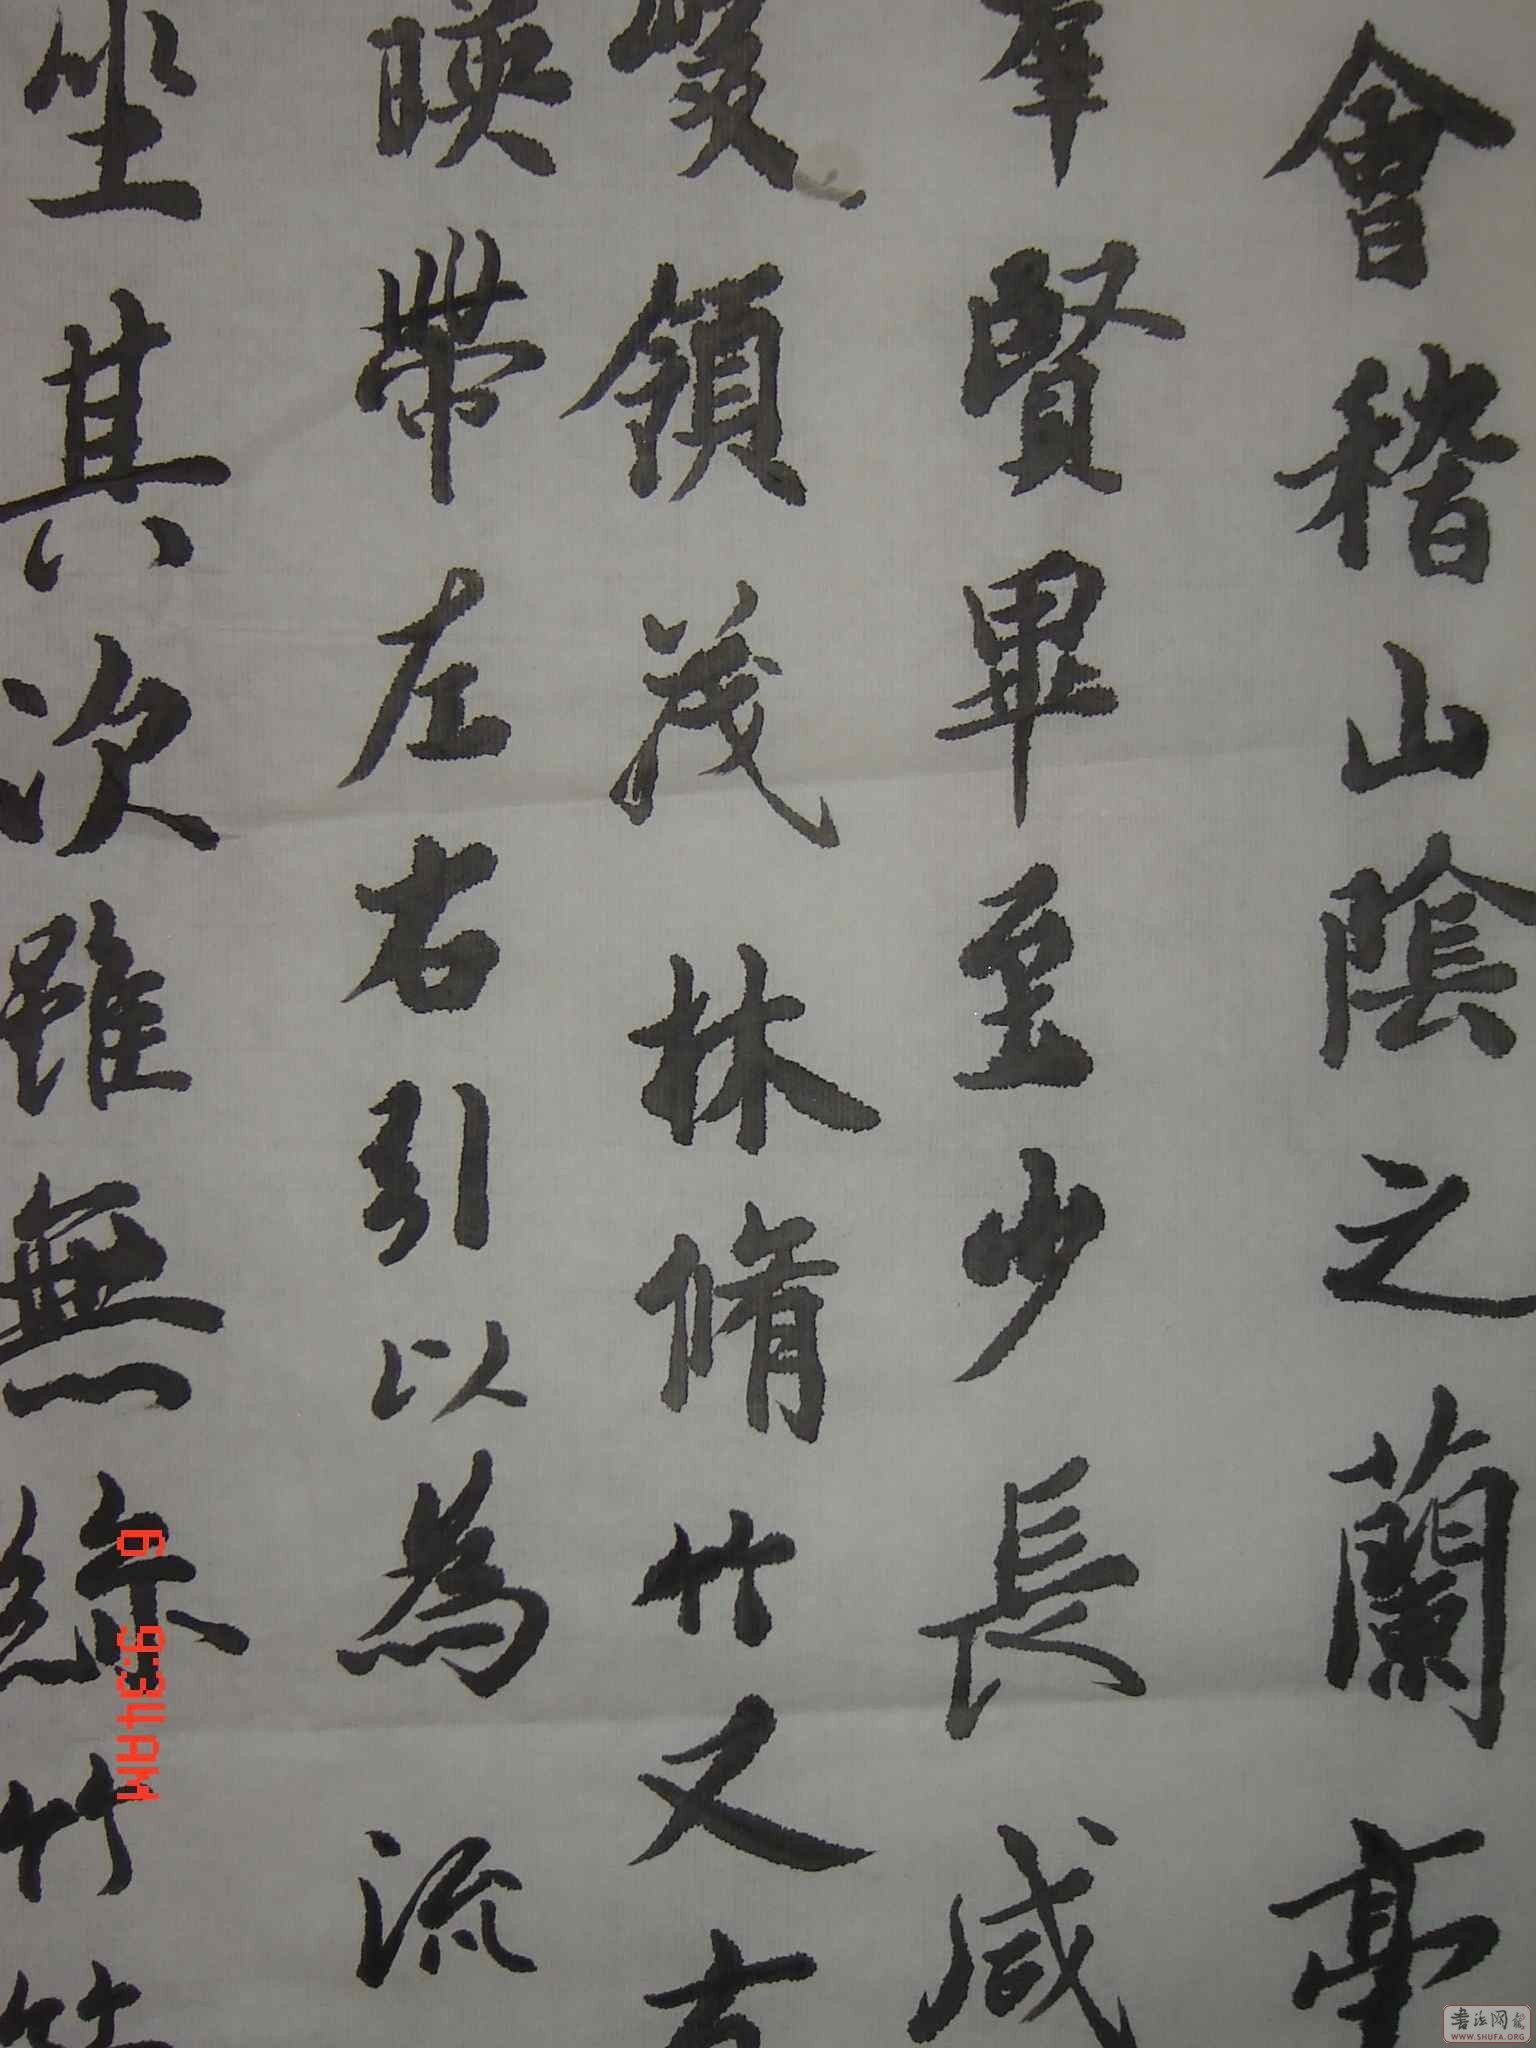 會稽山陰之蘭亭
羣賢畢至少長咸
峻領茂林脩竹又有
暎帶左右引以為流
坐其次雖無絲竹管
6 9:34AM
书法网
WWW.SHUFA.ORG